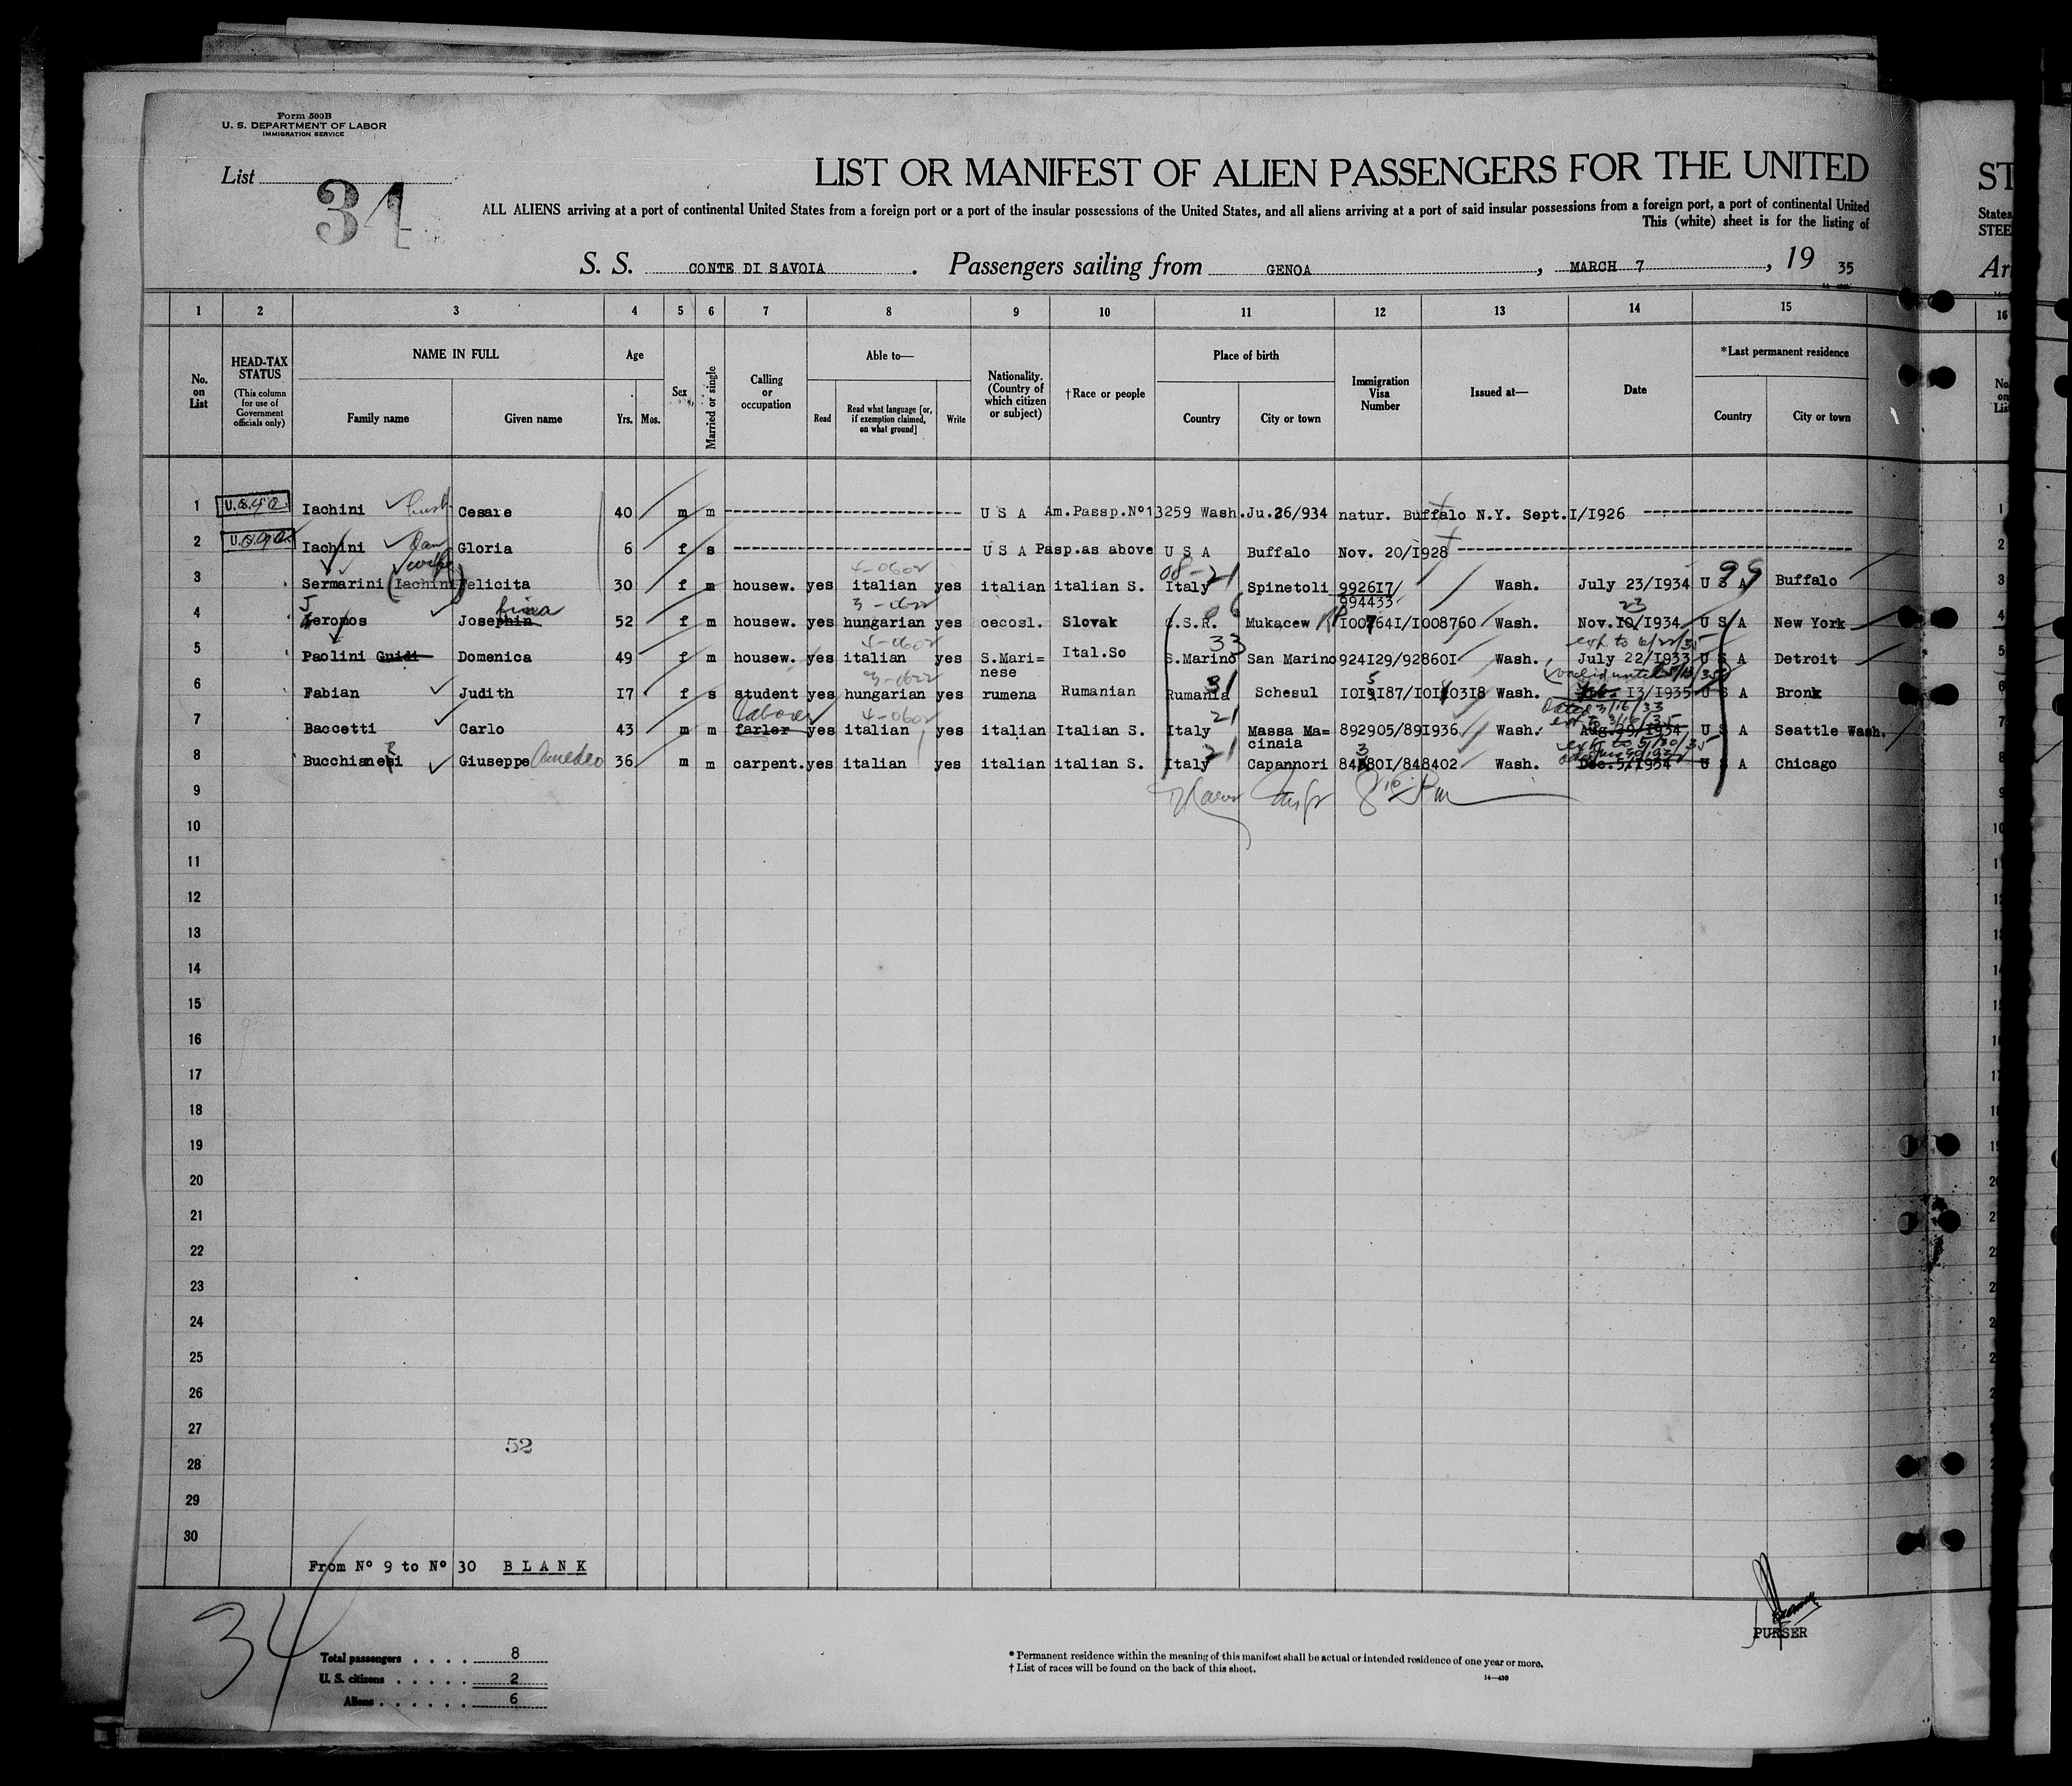 Form 500B
U. S. DEPARTMENT OF LABOR
IMMIGRATION SERVICE
List 34
LIST OR MANIFEST OF ALIEN PASSENGERS FOR THE UNITED
ST
ALL ALIENS arriving at a port of continental United States from a foreign port or a port of the insular possessions of the United States, and all aliens arriving at a port of said insular possessions from a foreign port, a port of continental United
States
This (white) sheet is for the listing of
STEE
S. S. CONTE DI SAVOIA. Passengers sailing from GENOA, MARCH 7, 19 35
Ar
1 2 3 4 5 6 7 8 9 10 11 12 13 14 15 16
No. on List
HEAD-TAX STATUS (This column for use of Government officials only)
NAME IN FULL
Family name Given name
Age
Yrs. Mos.
Sex
Married or single
Calling or occupation
Able to—
Read Read what language [or, if exemption claimed, on what ground] Write
Nationality. (Country of which citizen or subject)
†Race or people
Place of birth
Country City or town
Immigration Visa Number
Issued at—
Date
*Last permanent residence
Country City or town
1 U.S. Iachini Cesare 40 m m USA Am.Passp.Nº13259 Wash.Ju.26/934 natur. Buffalo N.Y. Sept.I/I926
2 Iachini Gloria 6 f s USA Pasp.as above USA Buffalo Nov. 20/I928
wife 4-060v 08-21 99
3 Sermarini (Iachini) Felicita 30 f m housew. yes italian yes italian italian S. Italy Spinetoli 9926I7/994433 Wash. July 23/I934 USA Buffalo
J fina 23
4 Jeromos Josephin 52 f m housew. yes hungarian yes cecosl. Slovak C.S.R. Mukacew I00764I/I008760 Wash. Nov.I0/I934 USA New York
4-060v 33 ext. to 6/22/35
5 Paolini Guidi Domenica 49 f m housew. yes italian yes S.Mari=nese Ital.So S.Marino San Marino 924I29/92860I Wash. July 22/I933 USA Detroit
31 5
6 Fabian Judith I7 f s student yes hungarian yes rumena Rumanian Rumania Schesul I0I9I87/I0I803I8 Wash. I3/I935 USA Bronx
laborer 4-060v 21 Dated 3/16/33
7 Baccetti Carlo 43 m m farler yes italian yes italian Italian S. Italy Massa Ma=cinaia 892905/89I936 Wash. Aug.29/I934 USA Seattle Wash.
21 3 ext. to 5/30/35
8 Bucchianesi Giuseppe Amedeo 36 m m carpent. yes italian yes italian italian S. Italy Capannori 84880I/848402 Wash. Dec.5/I934 USA Chicago
9
10
11
12
13
14
15
16
17
18
19
20
21
22
23
24
25
26
27
52
28
29
30
From Nº 9 to Nº 30 BLANK
34
Total passengers . . . . 8
U. S. citizens . . . . . 2
Aliens . . . . . . 6
* Permanent residence within the meaning of this manifest shall be actual or intended residence of one year or more.
† List of races will be found on the back of this sheet.
14—430
PURSER